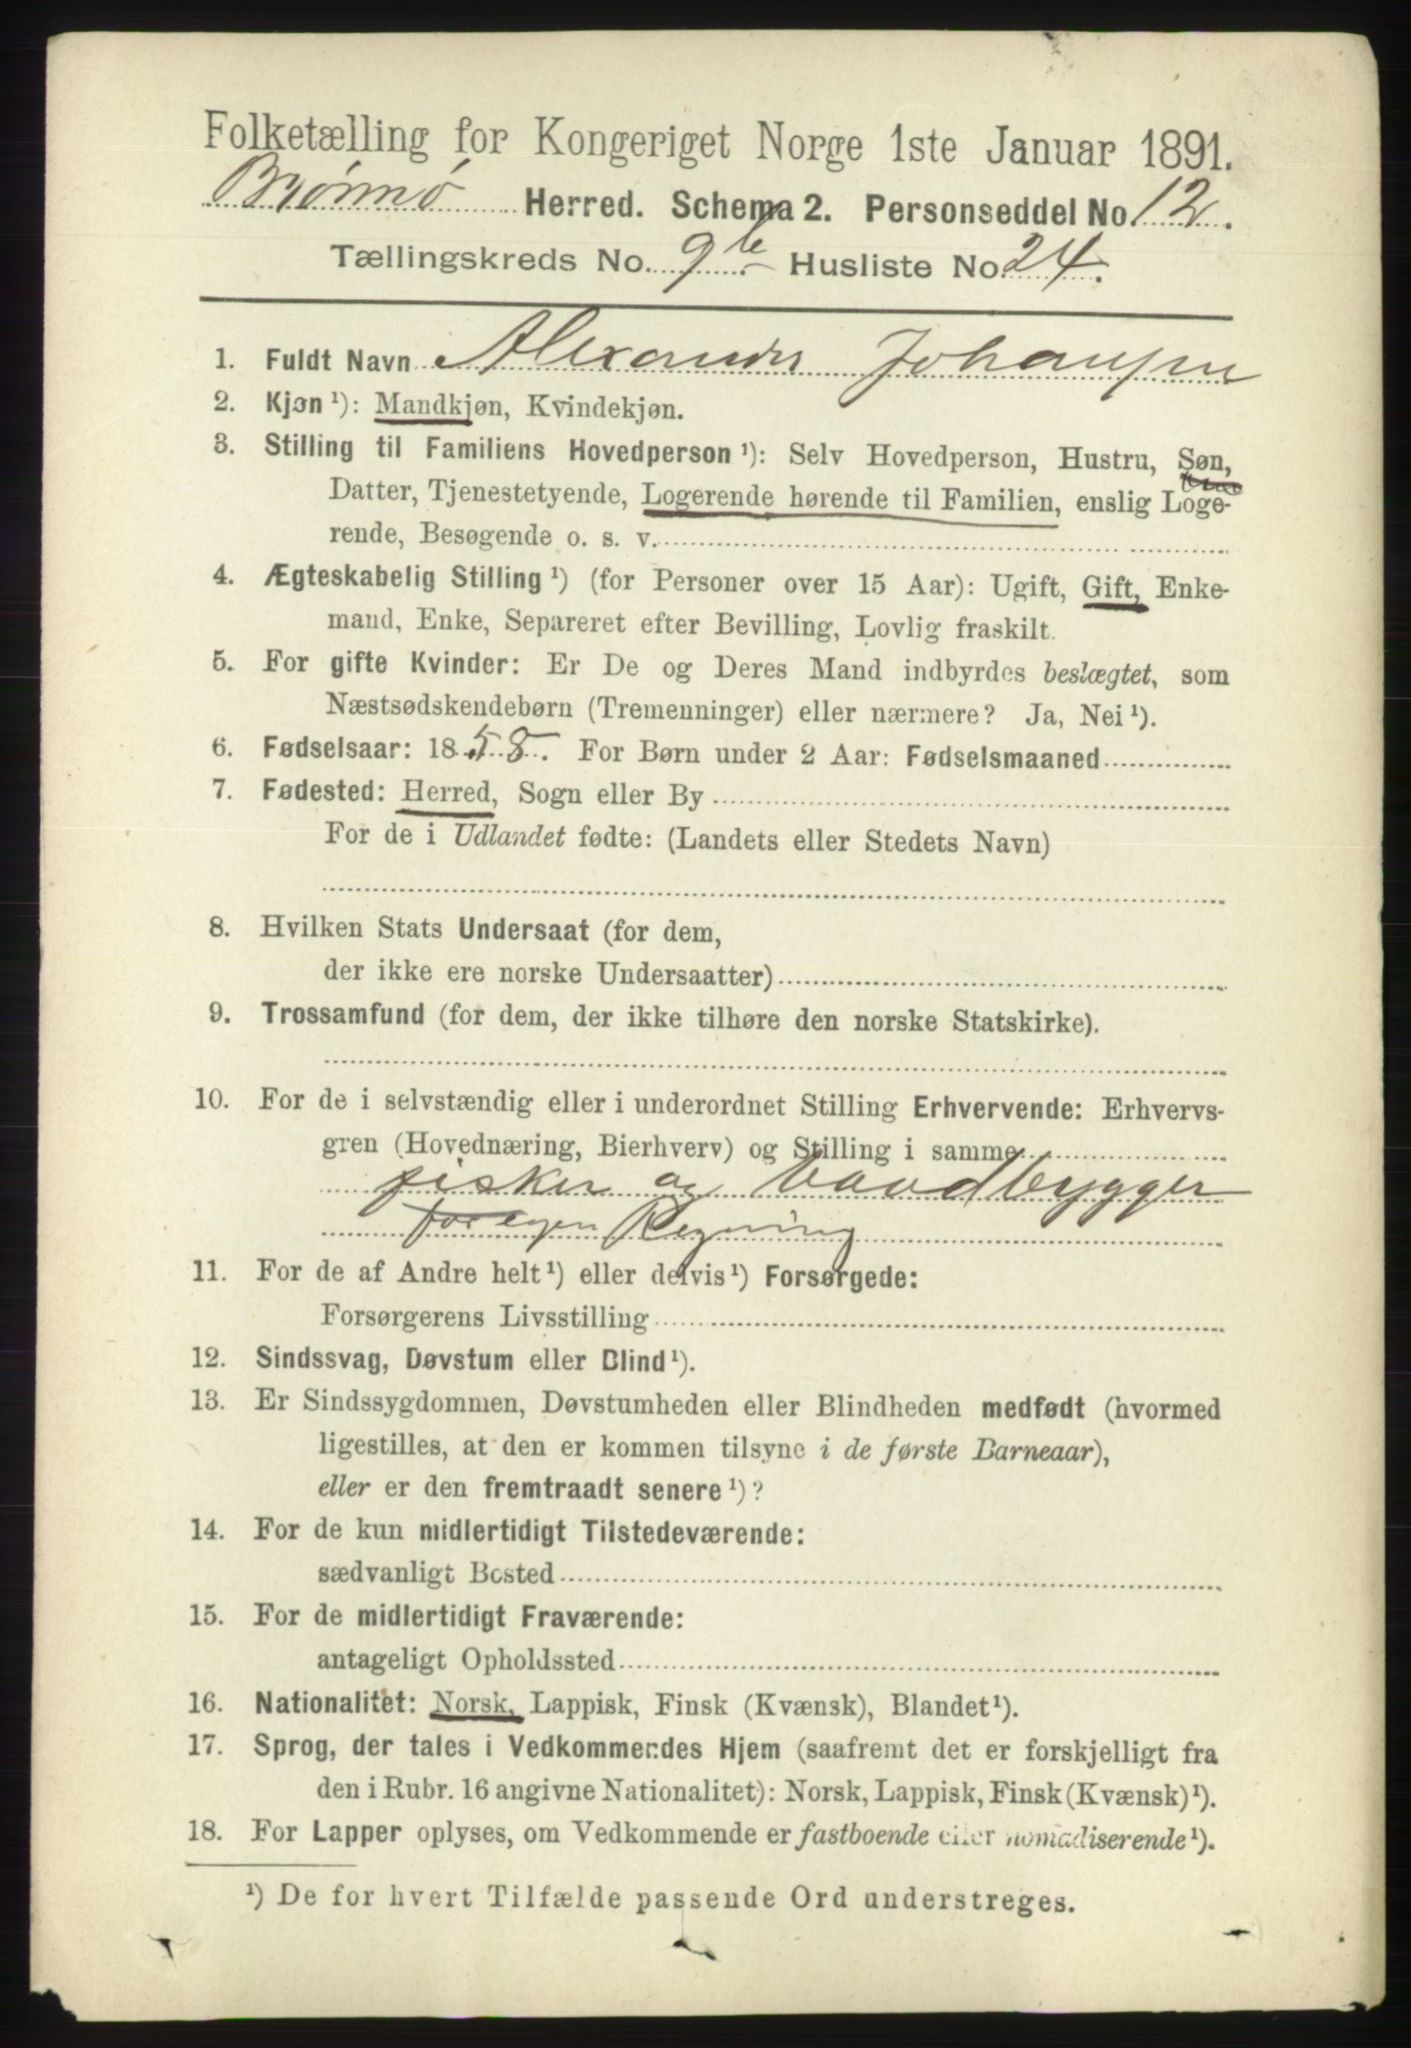 Folketælling for Kongeriget Norge 1ste Januar 1891.
Brønnø Herred. Schema 2. Personseddel No. 12.
Tællingskreds No. 9b. Husliste No. 24.
1. Fuldt Navn Alexander Johansen
2. Kjøn ¹): Mandkjøn, Kvindekjøn.
3. Stilling til Familiens Hovedperson ¹): Selv Hovedperson, Hustru, Søn,
Datter, Tjenestetyende, Logerende hørende til Familien, enslig Loge-
rende, Besøgende o. s. v.
4. Ægteskabelig Stilling ¹) (for Personer over 15 Aar): Ugift, Gift, Enke-
mand, Enke, Separeret efter Bevilling, Lovlig fraskilt.
5. For gifte Kvinder: Er De og Deres Mand indbyrdes beslægtet, som
Næstsødskendebørn (Tremenninger) eller nærmere? Ja, Nei ¹).
6. Fødselsaar: 1858. For Børn under 2 Aar: Fødselsmaaned
7. Fødested: Herred, Sogn eller By
For de i Udlandet fødte: (Landets eller Stedets Navn)
8. Hvilken Stats Undersaat (for dem,
der ikke ere norske Undersaatter)
9. Trossamfund (for dem, der ikke tilhøre den norske Statskirke).
10. For de i selvstændig eller i underordnet Stilling Erhvervende: Erhvervs-
gren (Hovednæring, Bierhverv) og Stilling i samme
fisker og baadbygger
for egen Regning
11. For de af Andre helt ¹) eller delvis ¹) Forsørgede:
Forsørgerens Livsstilling
12. Sindssvag, Døvstum eller Blind ¹).
13. Er Sindssygdommen, Døvstumheden eller Blindheden medfødt (hvormed
ligestilles, at den er kommen tilsyne i de første Barneaar),
eller er den fremtraadt senere ¹)?
14. For de kun midlertidigt Tilstedeværende:
sædvanligt Bosted
15. For de midlertidigt Fraværende:
antageligt Opholdssted
16. Nationalitet: Norsk, Lappisk, Finsk (Kvænsk), Blandet ¹).
17. Sprog, der tales i Vedkommendes Hjem (saafremt det er forskjelligt fra
den i Rubr. 16 angivne Nationalitet): Norsk, Lappisk, Finsk (Kvænsk) ¹).
18. For Lapper oplyses, om Vedkommende er fastboende eller nomadiserende ¹).
¹) De for hvert Tilfælde passende Ord understreges.